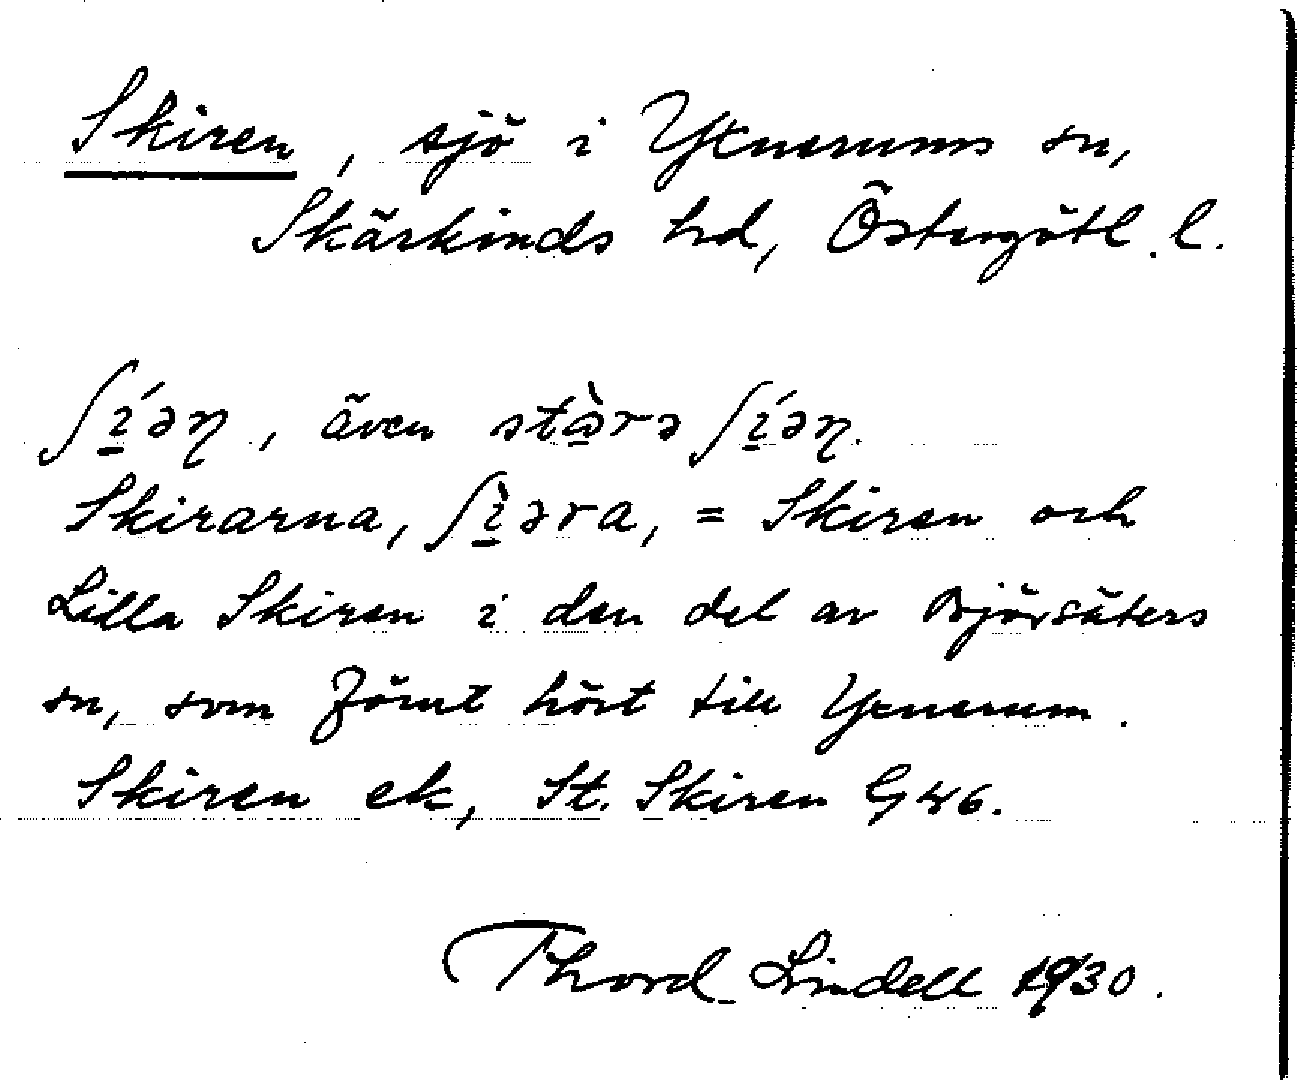 Skiren, sjö i Yxnerums sn,
Skärkinds hd, Östergötl. l.
ʃí̱əη, även stà̱rə ʃí̱əη.
Skirarna, ʃì̱əra, = Skiren och
Lilla Skiren i den del av Björsäters
sn, som förut hört till Yxnerum.
Skiren ek, St. Skiren G46.
Thord Lindell 1930.